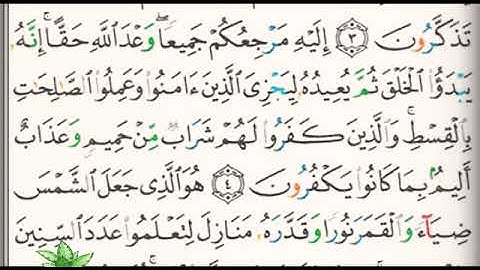 تَذَكَّرُونَ ۝٣ إِلَيْهِ مَرْجِعُكُمْ جَمِيعًا ۖ وَعْدَ ٱللَّهِ حَقًّا ۚ إِنَّهُۥ
يَبْدَؤُا۟ ٱلْخَلْقَ ثُمَّ يُعِيدُهُۥ لِيَجْزِىَ ٱلَّذِينَ ءَامَنُوا۟ وَعَمِلُوا۟ ٱلصَّـٰلِحَـٰتِ
بِٱلْقِسْطِ ۚ وَٱلَّذِينَ كَفَرُوا۟ لَهُمْ شَرَابٌ مِّنْ حَمِيمٍ وَعَذَابٌ
أَلِيمٌۢ بِمَا كَانُوا۟ يَكْفُرُونَ ۝٤ هُوَ ٱلَّذِى جَعَلَ ٱلشَّمْسَ
ضِيَآءً وَٱلْقَمَرَ نُورًا وَقَدَّرَهُۥ مَنَازِلَ لِتَعْلَمُوا۟ عَدَدَ ٱلسِّنِينَ